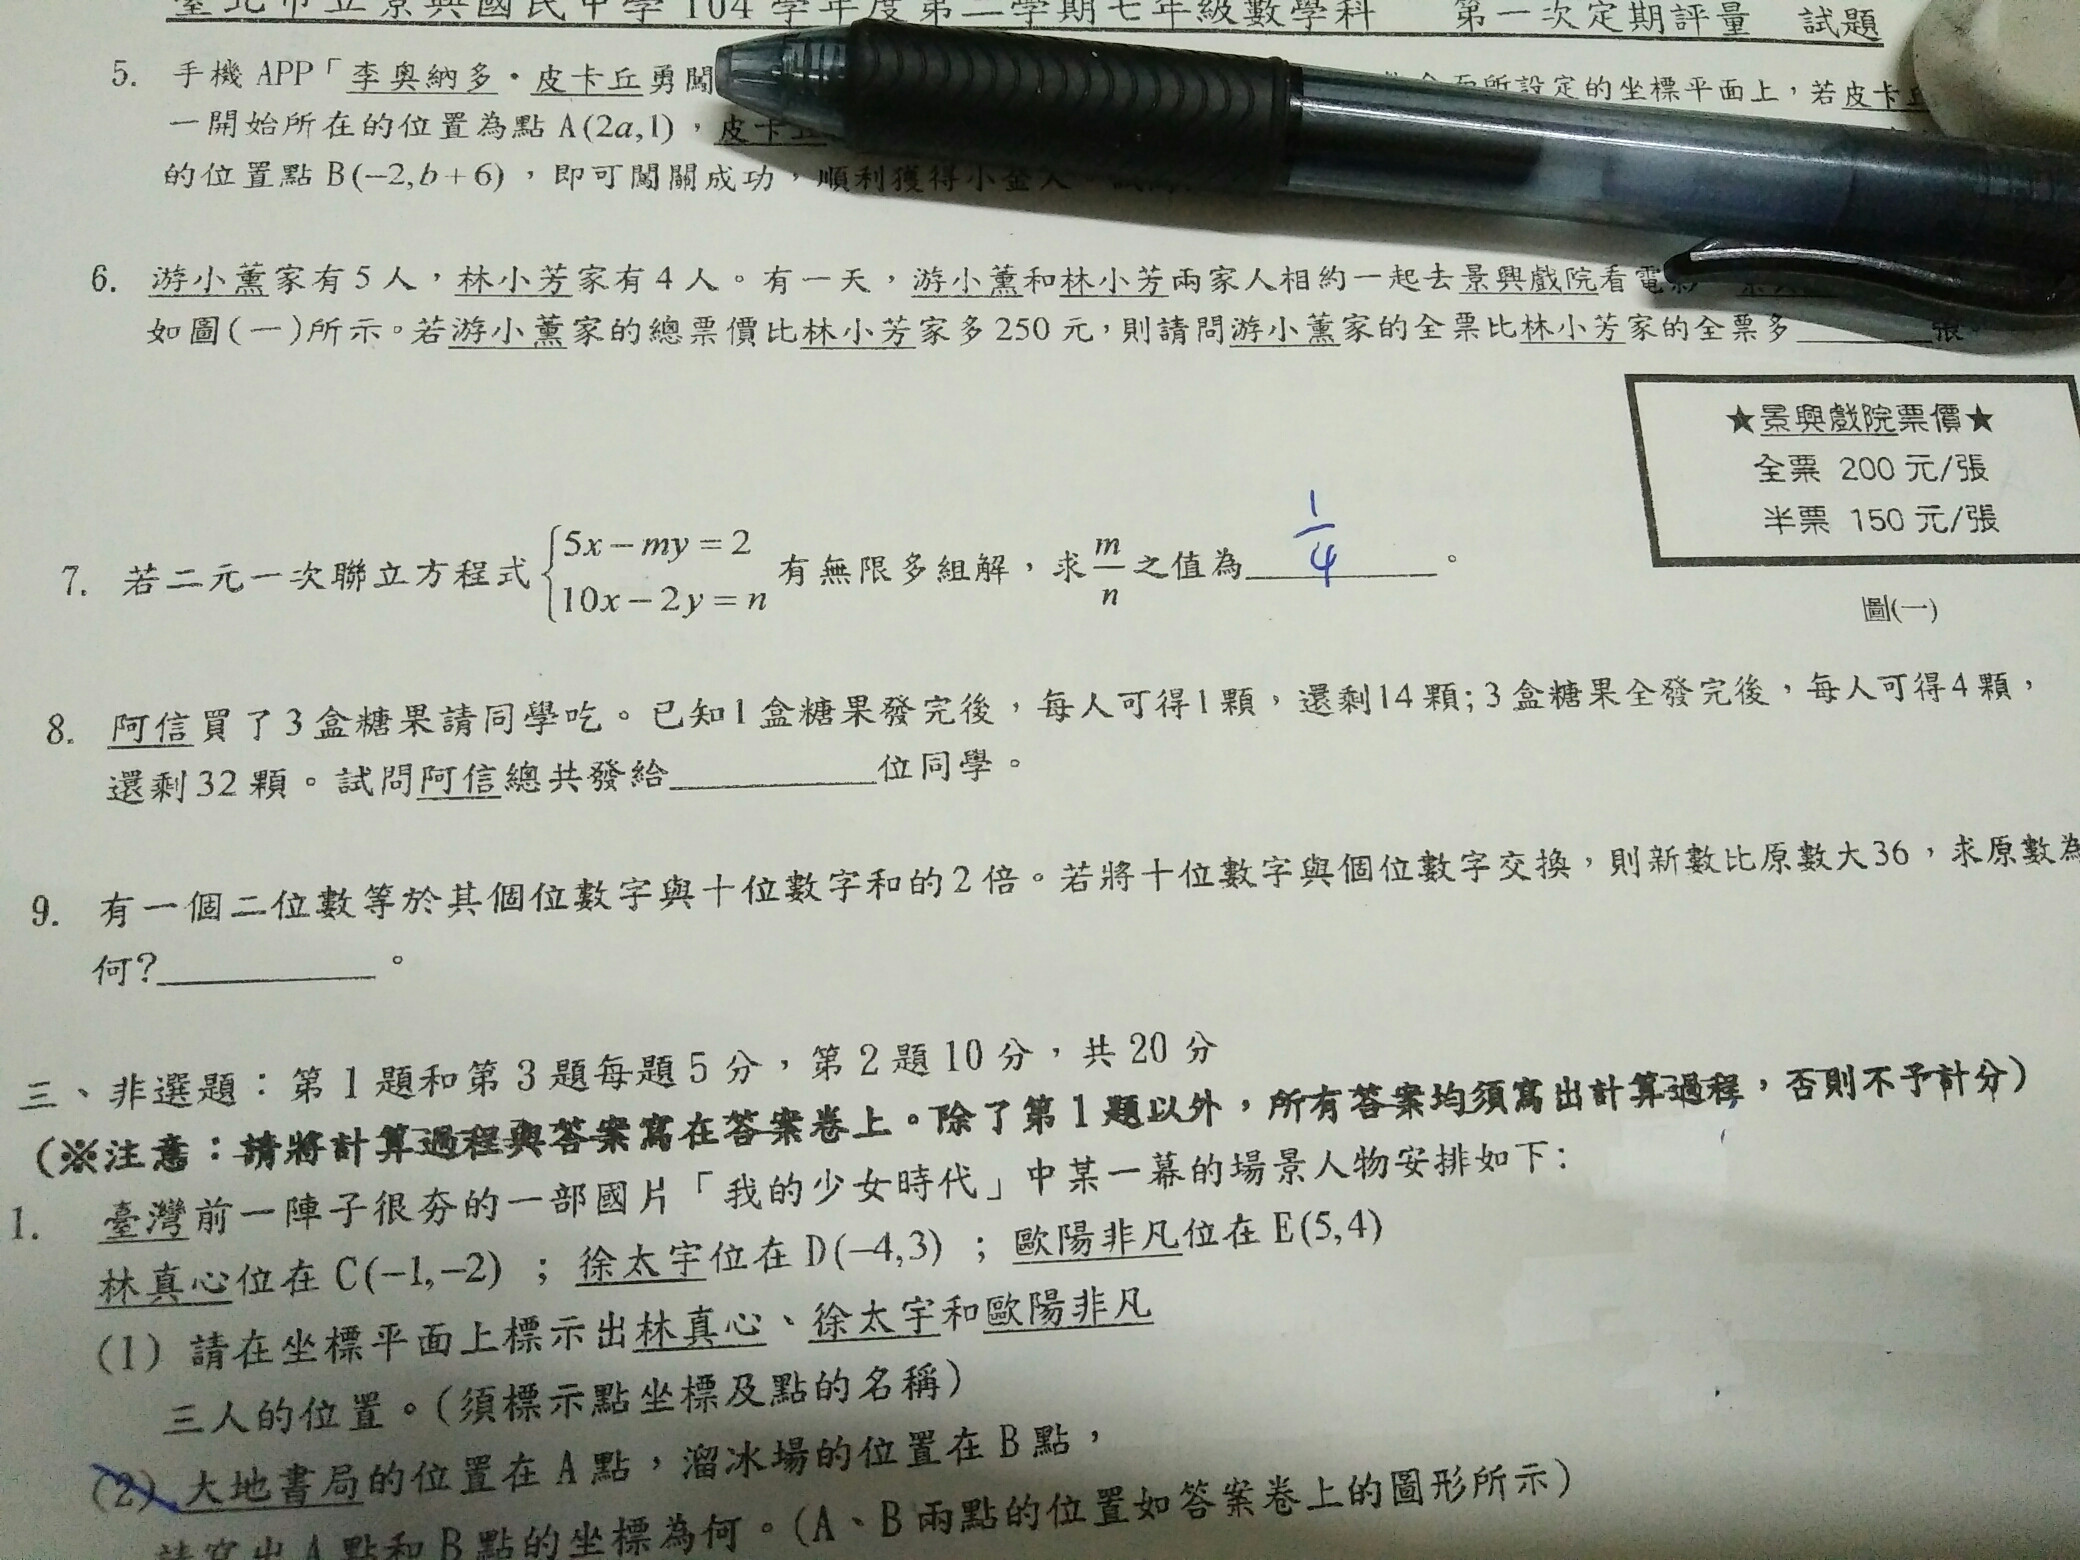 臺北市立景興國民中學104學年度第二學期七年級數學科 第一次定期評量 試題
5. 手機 APP「李奧納多·皮卡丘勇闖 所設定的坐標平面上，若皮卡丘
一開始所在的位置為點 A(2a,1)，皮卡丘
的位置點 B(−2,b+6)，即可闖關成功，順利獲得小金人
6. 游小薰家有5人，林小芳家有4人。有一天，游小薰和林小芳兩家人相約一起去景興戲院看電影
如圖(一)所示。若游小薰家的總票價比林小芳家多250元，則請問游小薰家的全票比林小芳家的全票多________張。
★景興戲院票價★
全票 200 元/張
半票 150 元/張
圖(一)
7. 若二元一次聯立方程式 {5x−my=2 10x−2y=n 有無限多組解，求 m/n 之值為 1/4 。
8. 阿信買了3盒糖果請同學吃。已知1盒糖果發完後，每人可得1顆，還剩14顆；3盒糖果全發完後，每人可得4顆，
還剩32顆。試問阿信總共發給________位同學。
9. 有一個二位數等於其個位數字與十位數字和的2倍。若將十位數字與個位數字交換，則新數比原數大36，求原數為
何?________。
三、非選題：第1題和第3題每題5分，第2題10分，共20分
(※注意：請將計算過程與答案寫在答案卷上。除了第1題以外，所有答案均須寫出計算過程，否則不予計分)
1. 臺灣前一陣子很夯的一部國片「我的少女時代」中某一幕的場景人物安排如下：
林真心位在 C(−1,−2) ；徐太宇位在 D(−4,3) ；歐陽非凡位在 E(5,4)
(1) 請在坐標平面上標示出林真心、徐太宇和歐陽非凡
三人的位置。(須標示點坐標及點的名稱)
(2) 大地書局的位置在A點，溜冰場的位置在B點，
請寫出A點和B點的坐標為何。(A、B兩點的位置如答案卷上的圖形所示)